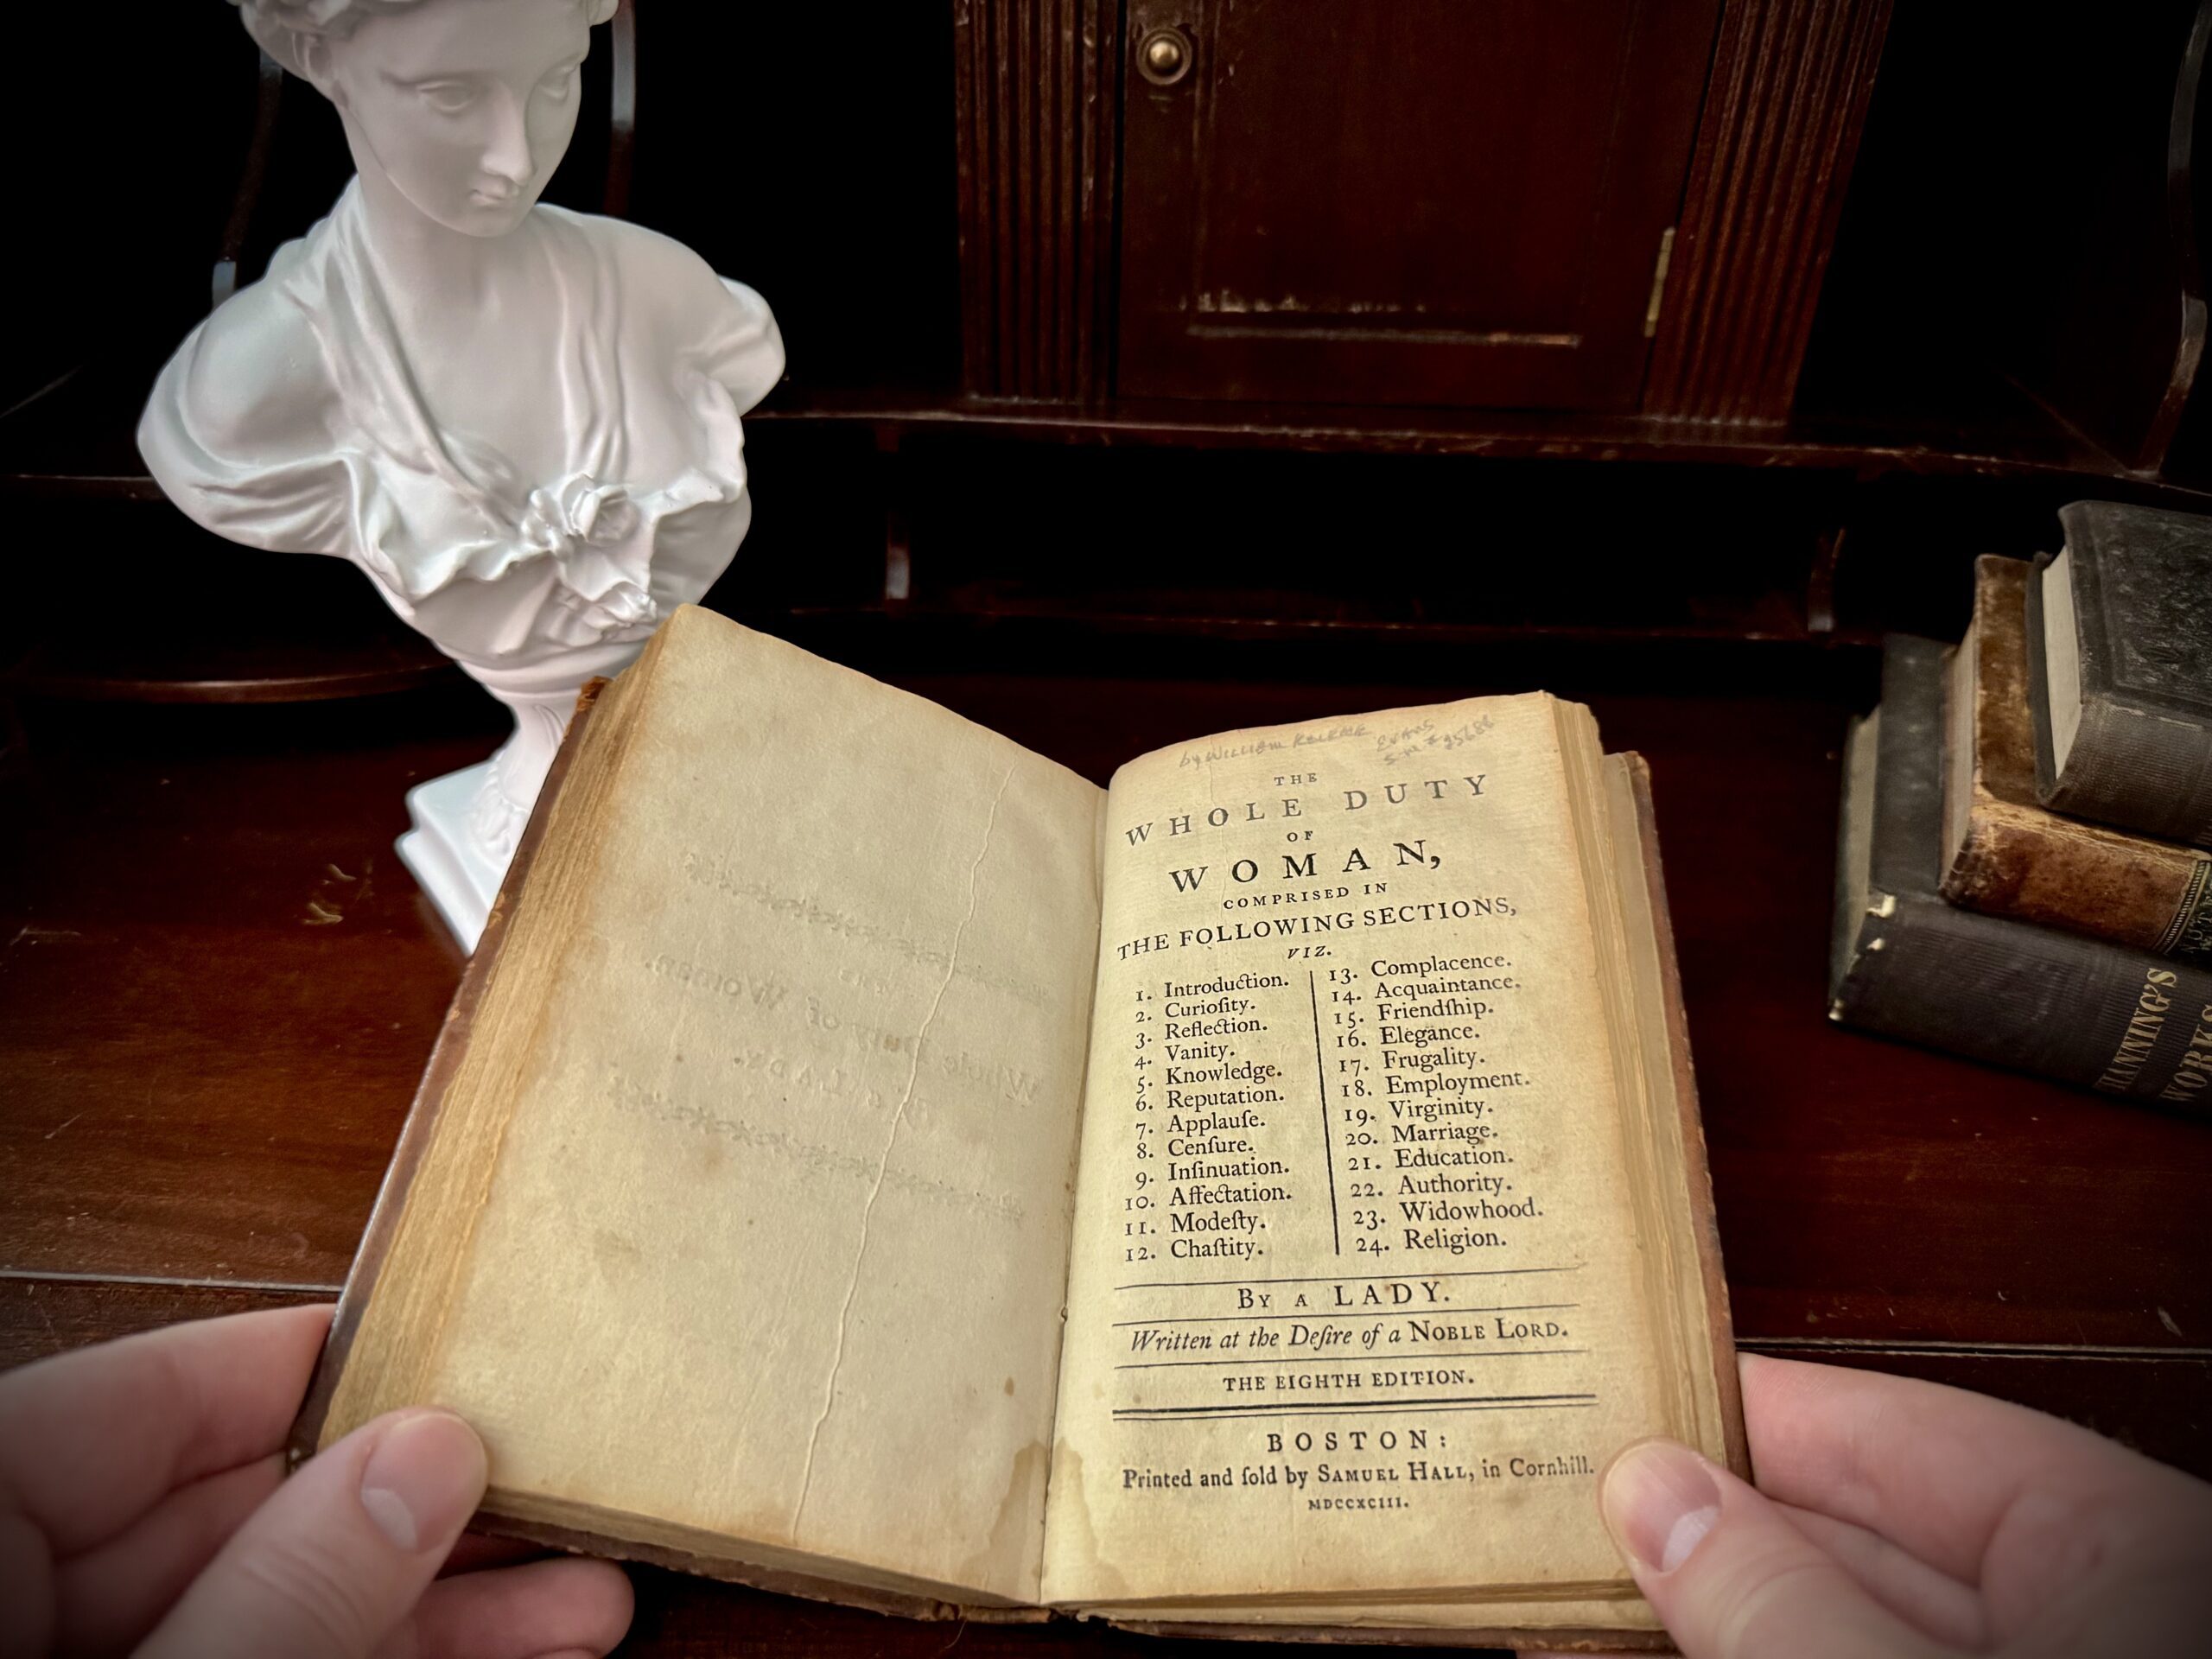 by William Kenrick Evans
25686
THE
WHOLE DUTY
OF
WOMAN,
COMPRISED IN
THE FOLLOWING SECTIONS,
VIZ.
1. Introduction.
2. Curioſity.
3. Reflection.
4. Vanity.
5. Knowledge.
6. Reputation.
7. Applauſe.
8. Cenſure.
9. Inſinuation.
10. Affectation.
11. Modeſty.
12. Chaſtity.
13. Complacence.
14. Acquaintance.
15. Friendſhip.
16. Elegance.
17. Frugality.
18. Employment.
19. Virginity.
20. Marriage.
21. Education.
22. Authority.
23. Widowhood.
24. Religion.
BY A LADY.
Written at the Deſire of a NOBLE LORD.
THE EIGHTH EDITION.
BOSTON:
Printed and ſold by SAMUEL HALL, in Cornhill.
MDCCXCIII.
Whole Duty of Woman.
By a LADY.
HANNING'S
WORKS